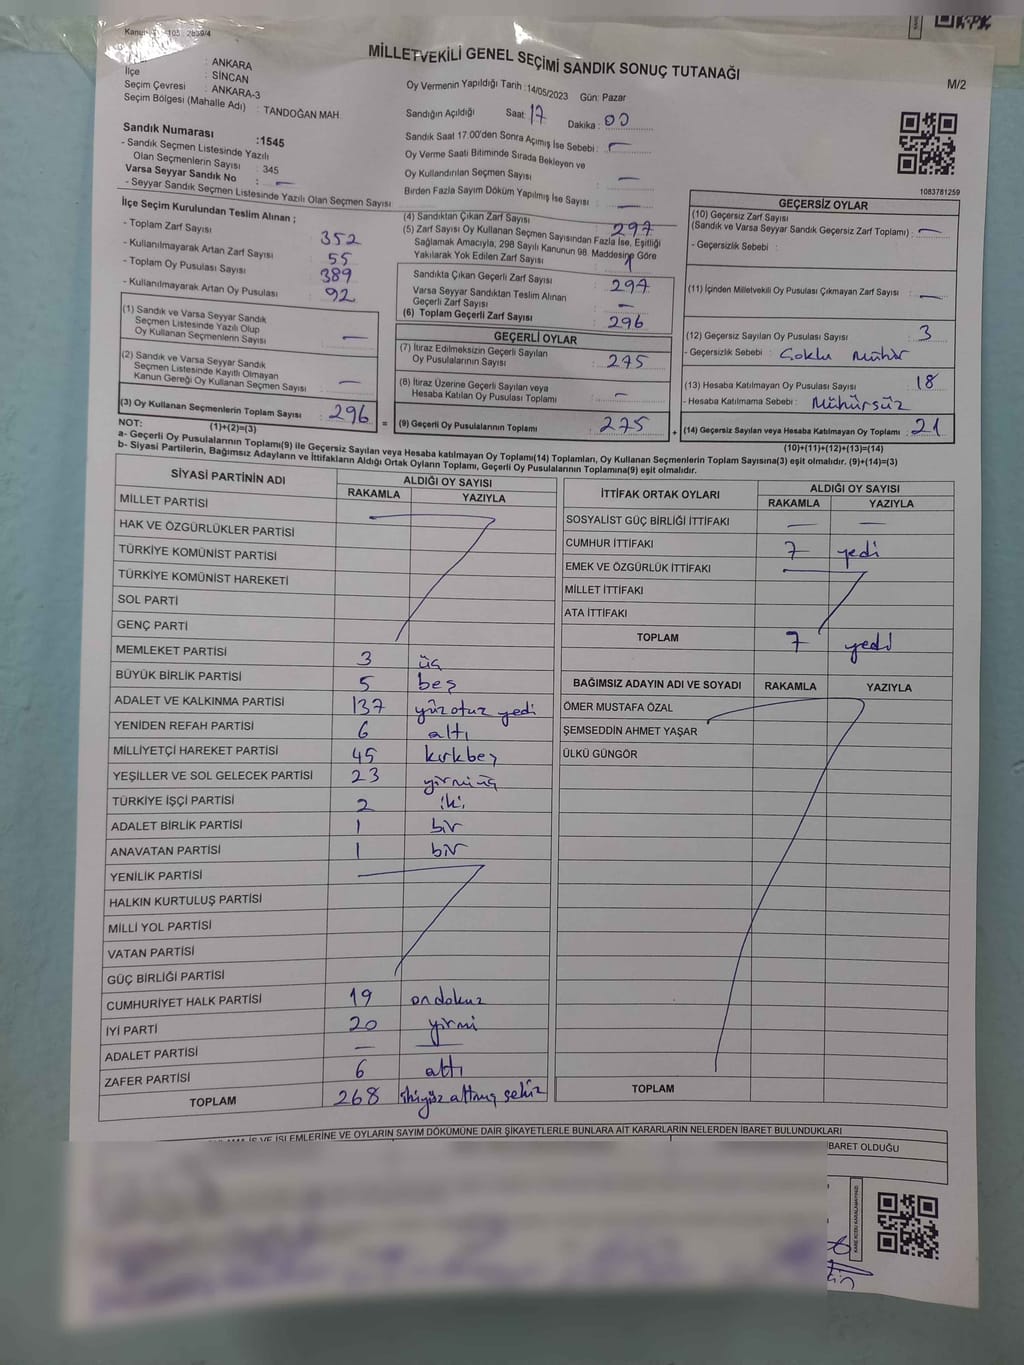 MİLLETVEKİLİ GENEL SEÇİMİ SANDIK SONUÇ TUTANAĞI
M/2
: ANKARA
İlçe : SİNCAN
Seçim Çevresi : ANKARA-3
Seçim Bölgesi (Mahalle Adı) : TANDOĞAN MAH
Oy Vermenin Yapıldığı Tarih : 14/05/2023 Gün: Pazar
Sandığın Açıldığı Saat : 17 Dakika : 00
Sandık Saat 17.00'den Sonra Açımış İse Sebebi : —
Oy Verme Saati Bitiminde Sırada Bekleyen ve
Oy Kullandırılan Seçmen Sayısı —
Birden Fazla Sayım Döküm Yapılmış İse Sayısı : —
Sandık Numarası :1545
- Sandık Seçmen Listesinde Yazılı
Olan Seçmenlerin Sayısı : 345
Varsa Seyyar Sandık No : —
- Seyyar Sandık Seçmen Listesinde Yazılı Olan Seçmen Sayısı
1083781259
İlçe Seçim Kurulundan Teslim Alınan ;
- Toplam Zarf Sayısı 352
- Kullanılmayarak Artan Zarf Sayısı 55
- Toplam Oy Pusulası Sayısı 389
- Kullanılmayarak Artan Oy Pusulası 92
(1) Sandık ve Varsa Seyyar Sandık
Seçmen Listesinde Yazılı Olup
Oy Kullanan Seçmenlerin Sayısı : —
(2) Sandık ve Varsa Seyyar Sandık
Seçmen Listesinde Kayıtlı Olmayan
Kanun Gereği Oy Kullanan Seçmen Sayısı : —
(3) Oy Kullanan Seçmenlerin Toplam Sayısı : 296
(1)+(2)=(3)
(4) Sandıktan Çıkan Zarf Sayısı : 297
(5) Zarf Sayısı Oy Kullanan Seçmen Sayısından Fazla İse, Eşitliği
Sağlamak Amacıyla, 298 Sayılı Kanunun 98. Maddesine Göre
Yakılarak Yok Edilen Zarf Sayısı : 1
Sandıkta Çıkan Geçerli Zarf Sayısı : 297
Varsa Seyyar Sandıktan Teslim Alınan
Geçerli Zarf Sayısı : —
(6) Toplam Geçerli Zarf Sayısı : 296
GEÇERLİ OYLAR
(7) İtiraz Edilmeksizin Geçerli Sayılan
Oy Pusulalarının Sayısı : 275
(8) İtiraz Üzerine Geçerli Sayılan veya
Hesaba Katılan Oy Pusulası Toplamı : —
= (9) Geçerli Oy Pusulalarının Toplamı : 275
GEÇERSİZ OYLAR
(10) Geçersiz Zarf Sayısı
(Sandık ve Varsa Seyyar Sandık Geçersiz Zarf Toplamı) : —
- Geçersizlik Sebebi :
(11) İçinden Milletvekili Oy Pusulası Çıkmayan Zarf Sayısı : —
(12) Geçersiz Sayılan Oy Pusulası Sayısı : 3
- Geçersizlik Sebebi : Çoklu Mühür
(13) Hesaba Katılmayan Oy Pusulası Sayısı : 18
- Hesaba Katılmama Sebebi : Mühürsüz
+ (14) Geçersiz Sayılan veya Hesaba Katılmayan Oy Toplamı : 21
(10)+(11)+(12)+(13)=(14)
NOT:
a- Geçerli Oy Pusulalarının Toplamı(9) ile Geçersiz Sayılan veya Hesaba katılmayan Oy Toplamı(14) Toplamları, Oy Kullanan Seçmenlerin Toplam Sayısına(3) eşit olmalıdır. (9)+(14)=(3)
b- Siyasi Partilerin, Bağımsız Adayların ve İttifakların Aldığı Ortak Oyların Toplamı, Geçerli Oy Pusulalarının Toplamına(9) eşit olmalıdır.
SİYASİ PARTİNİN ADI ALDIĞI OY SAYISI
RAKAMLA YAZIYLA
MİLLET PARTİSİ
HAK VE ÖZGÜRLÜKLER PARTİSİ
TÜRKİYE KOMÜNİST PARTİSİ
TÜRKİYE KOMÜNİST HAREKETİ
SOL PARTİ
GENÇ PARTİ
MEMLEKET PARTİSİ 3 üç
BÜYÜK BİRLİK PARTİSİ 5 beş
ADALET VE KALKINMA PARTİSİ 137 yüzotuz yedi
YENİDEN REFAH PARTİSİ 6 altı
MİLLİYETÇİ HAREKET PARTİSİ 45 kırkbeş
YEŞİLLER VE SOL GELECEK PARTİSİ 23 yirmiüç
TÜRKİYE İŞÇİ PARTİSİ 2 iki
ADALET BİRLİK PARTİSİ 1 bir
ANAVATAN PARTİSİ 1 bir
YENİLİK PARTİSİ
HALKIN KURTULUŞ PARTİSİ
MİLLİ YOL PARTİSİ
VATAN PARTİSİ
GÜÇ BİRLİĞİ PARTİSİ
CUMHURİYET HALK PARTİSİ 19 ondokuz
İYİ PARTİ 20 yirmi
ADALET PARTİSİ — —
ZAFER PARTİSİ 6 altı
TOPLAM 268 ikiyüz altmış sekiz
İTTİFAK ORTAK OYLARI ALDIĞI OY SAYISI
RAKAMLA YAZIYLA
SOSYALİST GÜÇ BİRLİĞİ İTTİFAKI — —
CUMHUR İTTİFAKI 7 yedi
EMEK VE ÖZGÜRLÜK İTTİFAKI
MİLLET İTTİFAKI
ATA İTTİFAKI
TOPLAM 7 yedi
BAĞIMSIZ ADAYIN ADI VE SOYADI RAKAMLA YAZIYLA
ÖMER MUSTAFA ÖZAL
ŞEMSEDDİN AHMET YAŞAR
ÜLKÜ GÜNGÖR
TOPLAM
İŞLEMLERİNE VE OYLARIN SAYIM DÖKÜMÜNE DAİR ŞİKAYETLERLE BUNLARA AİT KARARLARIN NELERDEN İBARET BULUNDUKLARI
İBARET OLDUĞU